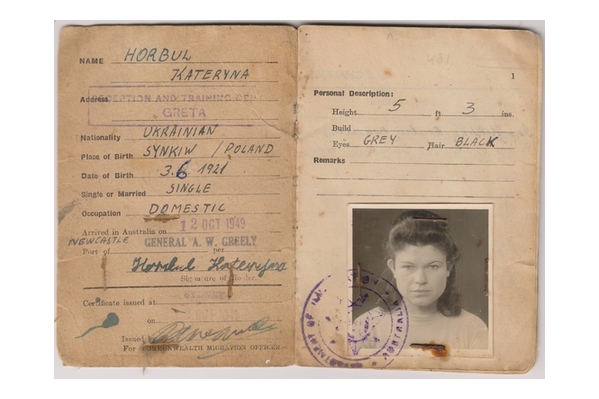 NAME HORBUL
KATERYNA
Address RECEPTION AND TRAINING CEN
GRETA
Nationality UKRAINIAN
Place of Birth SYNKIW / POLAND
Date of Birth 3.6 1921
Single or Married SINGLE
Occupation DOMESTIC
Arrived in Australia on 12 OCT 1949
NEWCASTLE GENERAL A. W. GREELY
Port of per
Horbul Kateryna
Signature of Holder.
Certificate issued at
on
Issued by
For COMMONWEALTH MIGRATION OFFICER
1
Personal Description:
Height 5 ft 3 ins.
Build
Eyes GREY Hair BLACK
Remarks